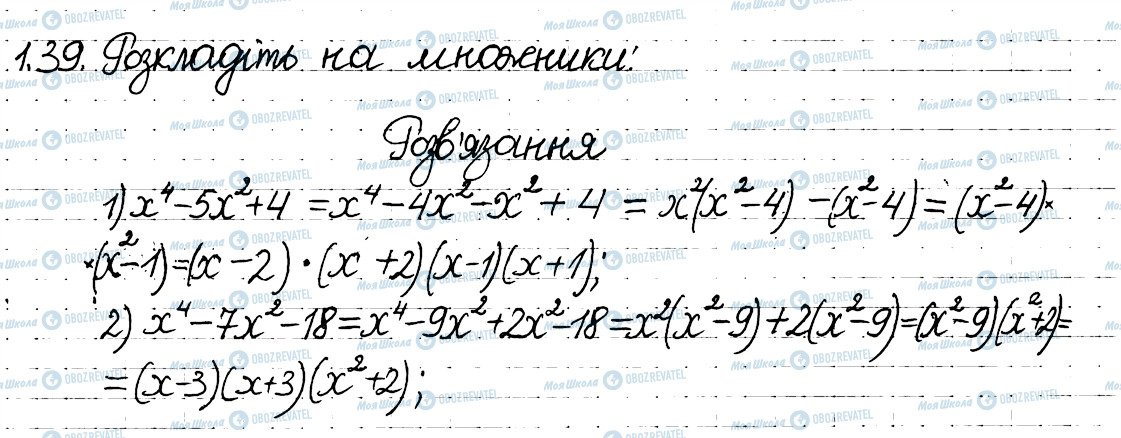 1.39. Розкладіть на множники:
Розв'язання
1) x⁴-5x²+4 = x⁴-4x²-x²+4 = x²(x²-4)-(x²-4) = (x²-4)×
×(x²-1)=(x-2)·(x+2)(x-1)(x+1);
2) x⁴-7x²-18=x⁴-9x²+2x²-18=x²(x²-9)+2(x²-9)=(x²-9)(x²+2)=
=(x-3)(x+3)(x²+2);